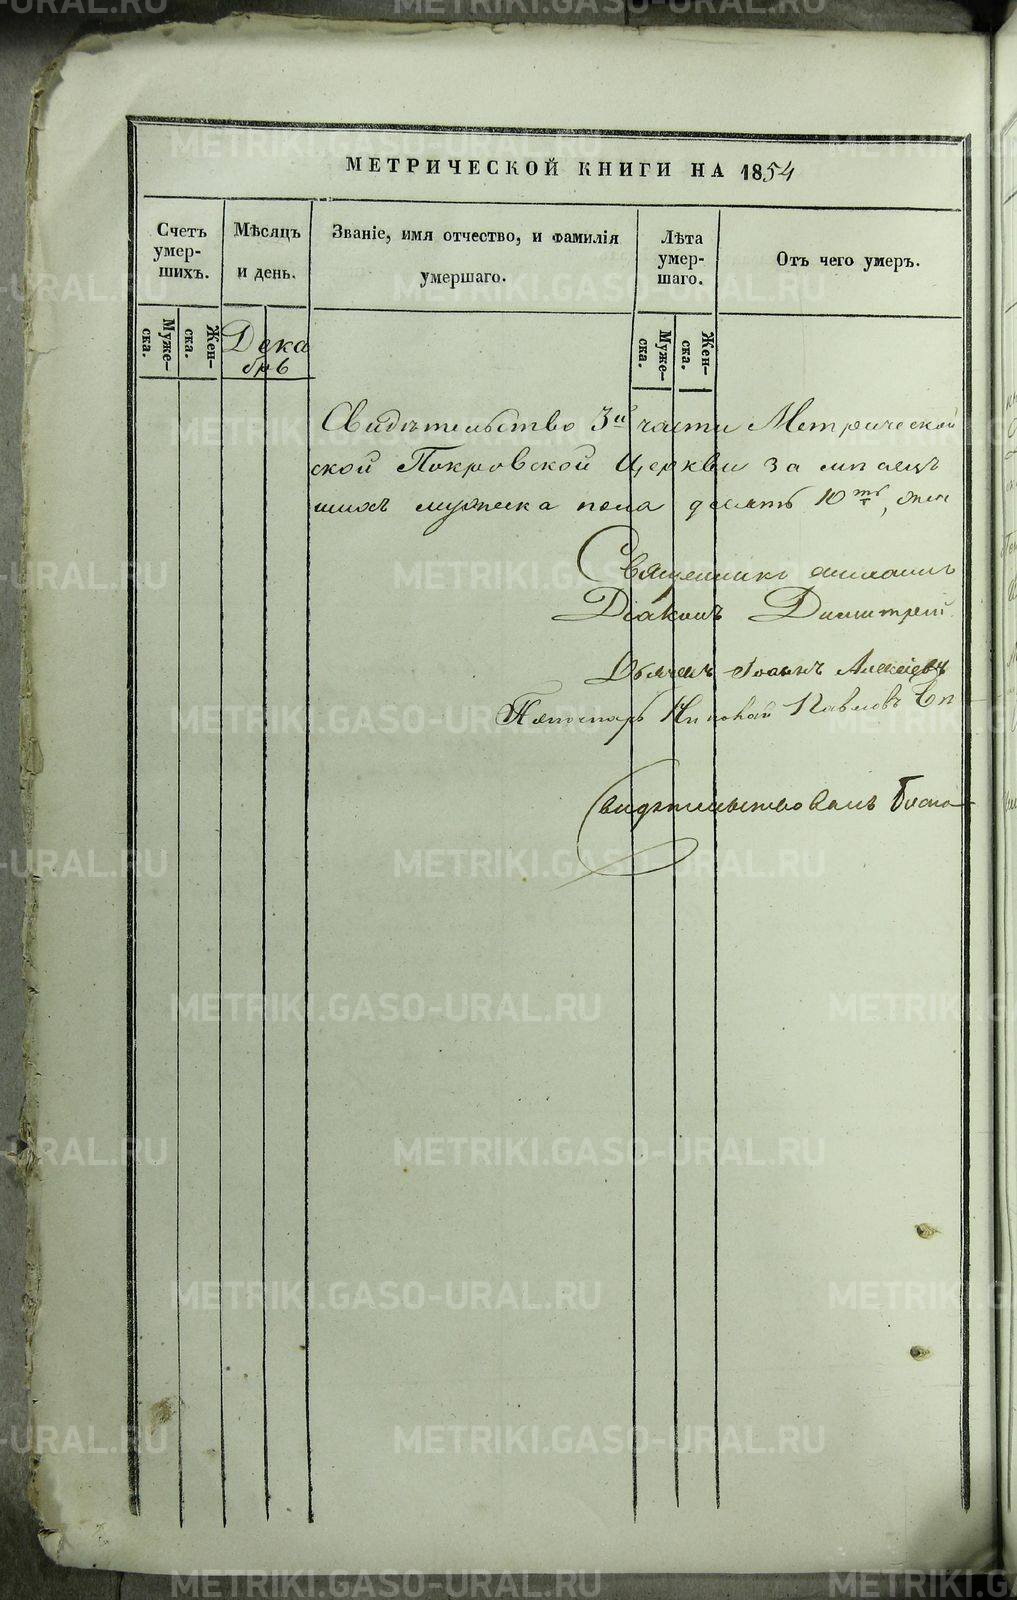 МЕТРИЧЕСКОЙ КНИГИ НА 1854
Счетъ умер-шихъ.
Мѣсяцъ и день.
Званіе, имя отчество, и фамилія умершаго.
Лѣта умер-шаго.
Отъ чего умеръ.
Муже-ска.
Жен-ска.
Дека
брь
Муже-ска.
Жен-ска.
Свидѣтельство 3й части Метрической
ской Покровской Церкви за мѣсяцъ
шихъ мужеска пола десять 10ть, жен
Священникъ
Діаконъ Димитрей
Дьячекъ Іоаннъ Алексіевъ
Пономарь Николай Павловъ
Свидѣтельствовалъ Благо
METRIKI.GASO-URAL.RU